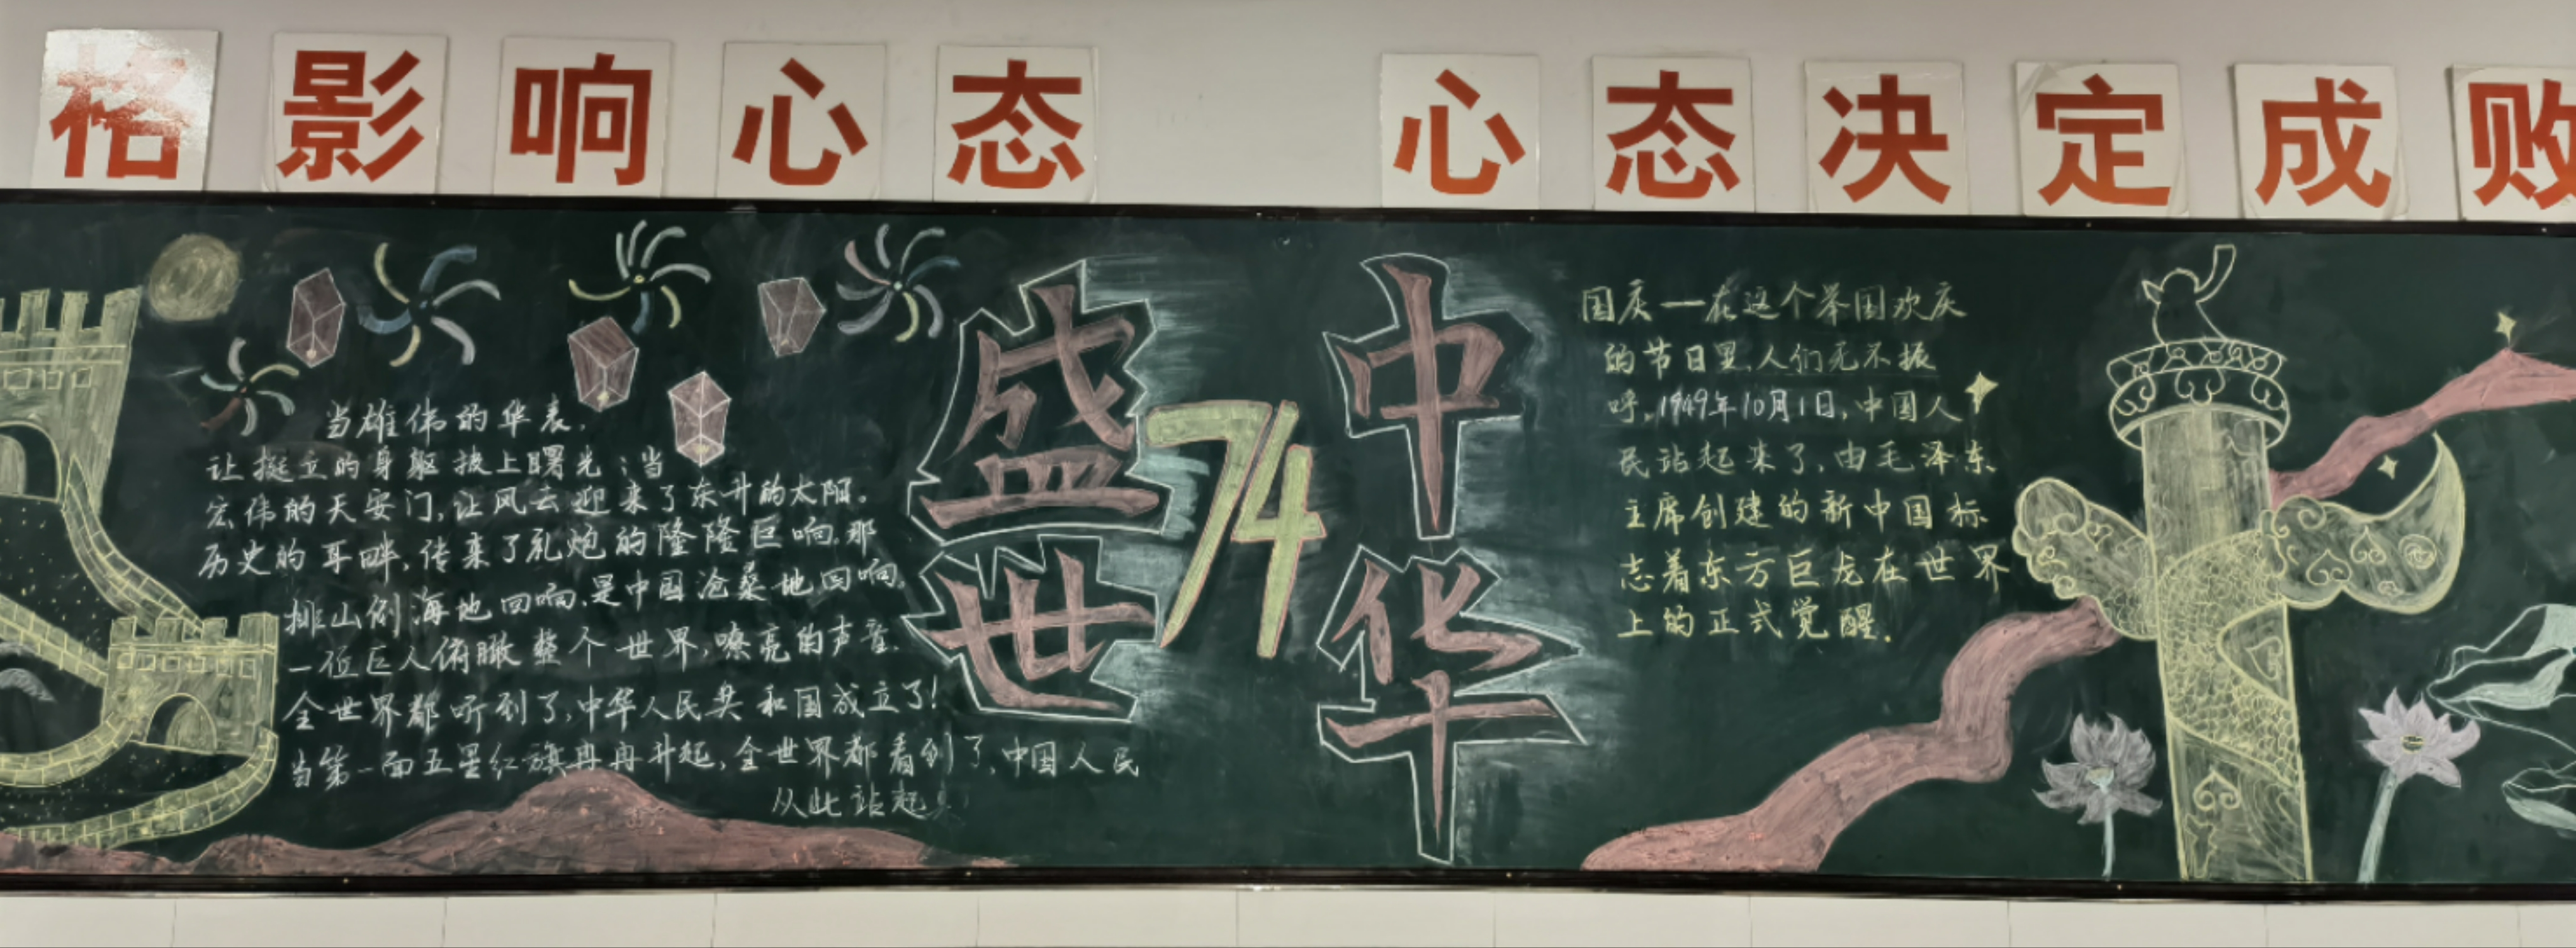 格影响心态 心态决定成败
当雄伟的华表,
让挺立的身躯披上曙光;当
宏伟的天安门,让风云迎来了东升的太阳。
历史的耳畔,传来了礼炮的隆隆巨响,那
排山倒海地回响,是中国沧桑地回响。
一位巨人俯瞰整个世界,嘹亮的声音.
全世界都听到了,中华人民共和国成立了!
当第一面五星红旗冉冉升起,全世界都看到了,中国人民
从此站起
盛世
74
中华
国庆一一在这个举国欢庆
的节日里,人们无不振
呼,1949年10月1日,中国人
民站起来了,由毛泽东
主席创建的新中国标
志着东方巨龙在世界
上的正式觉醒.